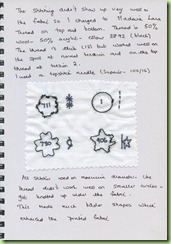 The stitching didn't show up very well on
the fabric so I changed to Madeira Lana
thread on top and bottom. Thread is 50%
wool 50% acrylic - colour 3892 (black)
The thread is thick (12) but worked well on
the spool at normal tension and on the top
thread at tension 2.
I used a topstitch needle (Superior - 100/16)
711
1
790
706
All stitches sewed on maximum dimension - the
thread didn't work well on smaller sizes -
got bunched up under the fabric.
This made much bolder shapes which
enhanced the printed fabric.